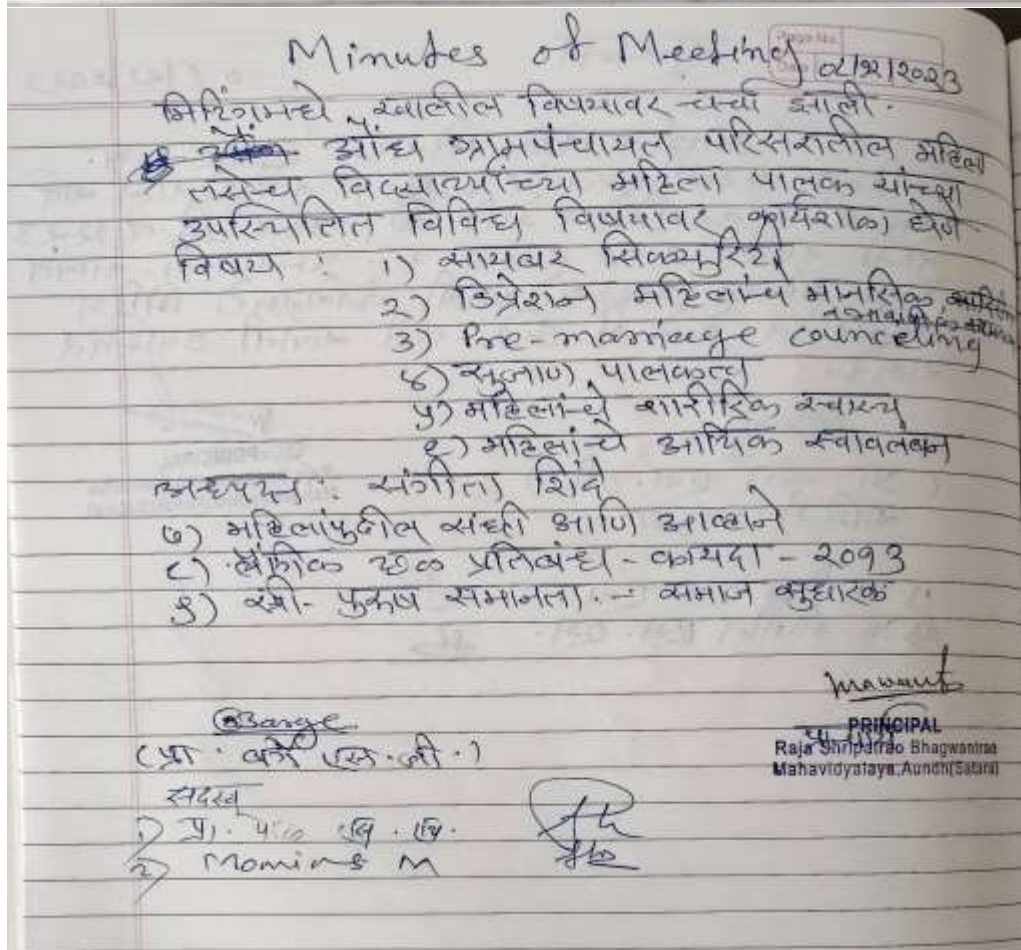 Minutes of Meeting
Page No.
02/12/2023
मिटिंगमध्ये खालील विषयावर चर्चा झाली.
औंध ग्रामपंचायत परिसरातील महिला
तसेच विद्यार्थ्यांच्या महिला पालक यांच्या
उपस्थितित विविध विषयावर कार्यशाळा घेणे
विषय : १) सायबर सिक्युरिटी
२) डिप्रेशन महिलांचे मानसिक
3) Pre-marriage counceling
४) सुजाण पालकत्व
५) महिलांचे शारीरिक स्वास्थ्य
६) महिलांचे आर्थिक स्वावलंबन
अध्यक्ष : संगीता शिंदे
७) महिलांपुढील संधी आणि आव्हाने
८) लैंगिक छळ प्रतिबंध - कायदा - २०१३
९) स्त्री - पुरुष समानता. - समाज सुधारक
Barge
(प्रा. बर्गे एस. जी.)
PRINCIPAL
Raja Shripatrao Bhagwantrao
Mahavidyalaya, Aundh(Satara)
सदस्य
१) प्रा.
२) Momin S M